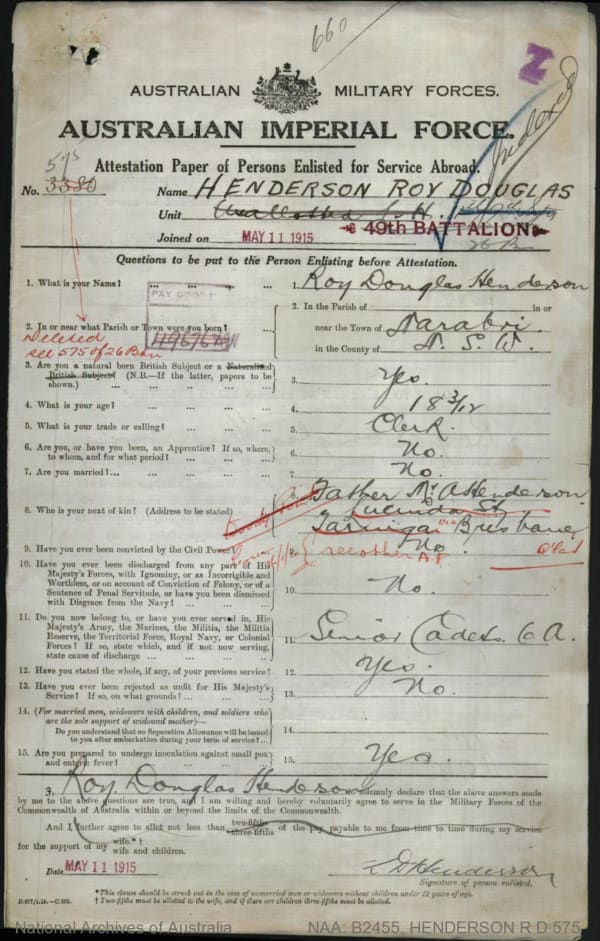 660
Z
AUSTRALIAN MILITARY FORCES.
AUSTRALIAN IMPERIAL FORCE.
Attestation Paper of Persons Enlisted for Service Abroad.
575
No. 3380 Name HENDERSON ROY DOUGLAS
Unit Unallotted L. H. 49th BATTALION
26 Bn
Joined on MAY 11 1915
Questions to be put to the Person Enlisting before Attestation.
1. What is your Name? ... ... ... ... 1. Roy Douglas Henderson
PAY BOOK
2. In or near what Parish or Town were you born? 2. In the Parish of in or
near the Town of Narabri.
in the County of N. S. W.
49676
Deleted
see 575 of 26 Bn
3. Are you a natural born British Subject or a Naturalized
British Subject? (N.B.—If the latter, papers to be
shown.) ... ... ... ... 3. Yes.
4. What is your age? ... ... ... 4. 18 3/12
5. What is your trade or calling? ... ... 5. Clerk.
6. Are you, or have you been, an Apprentice? If so, where,
to whom, and for what period? ... ... 6. No.
7. Are you married?... ... ... ... 7. No.
8. Who is your next of kin? (Address to be stated) 8. Father Mr A Henderson
Lucinda St
Taringa via Brisbane
Q'land
9. Have you ever been convicted by the Civil Power? No.
see other A.P.
10. Have you ever been discharged from any part of His
Majesty's Forces, with Ignominy, or as Incorrigible and
Worthless, or on account of Conviction of Felony, or of a
Sentence of Penal Servitude, or have you been dismissed
with Disgrace from the Navy? ... ... ... 10. No.
11. Do you now belong to, or have you ever served in, His
Majesty's Army, the Marines, the Militia, the Militia
Reserve, the Territorial Force, Royal Navy, or Colonial
Forces? If so, state which, and if not now serving,
state cause of discharge ... ... ... 11. Senior Cadets 6 A.
12. Have you stated the whole, if any, of your previous service? 12. Yes.
13. Have you ever been rejected as unfit for His Majesty's
Service? If so, on what grounds? ... ... 13. No.
14. (For married men, widowers with children, and soldiers who
are the sole support of widowed mother)—
Do you understand that no Separation Allowance will be issued
to you after embarkation during your term of service? ... 14.
15. Are you prepared to undergo inoculation against small pox
and enteric fever? ... ... ... ... 15. Yes.
I, Roy Douglas Henderson solemnly declare that the above answers made
by me to the above questions are true, and I am willing and hereby voluntarily agree to serve in the Military Forces of the
Commonwealth of Australia within or beyond the limits of the Commonwealth.
And I further agree to allot not less than two-fifths three-fifths of the pay payable to me from time to time during my service
for the support of my wife.*† wife and children.
Date MAY 11 1915 R D Henderson
Signature of person enlisted.
*This clause should be struck out in the case of unmarried men or widowers without children under 18 years of age.
† Two-fifths must be allotted to the wife, and if there are children three-fifths must be allotted.
National Archives of Australia NAA: B2455, HENDERSON R D 575